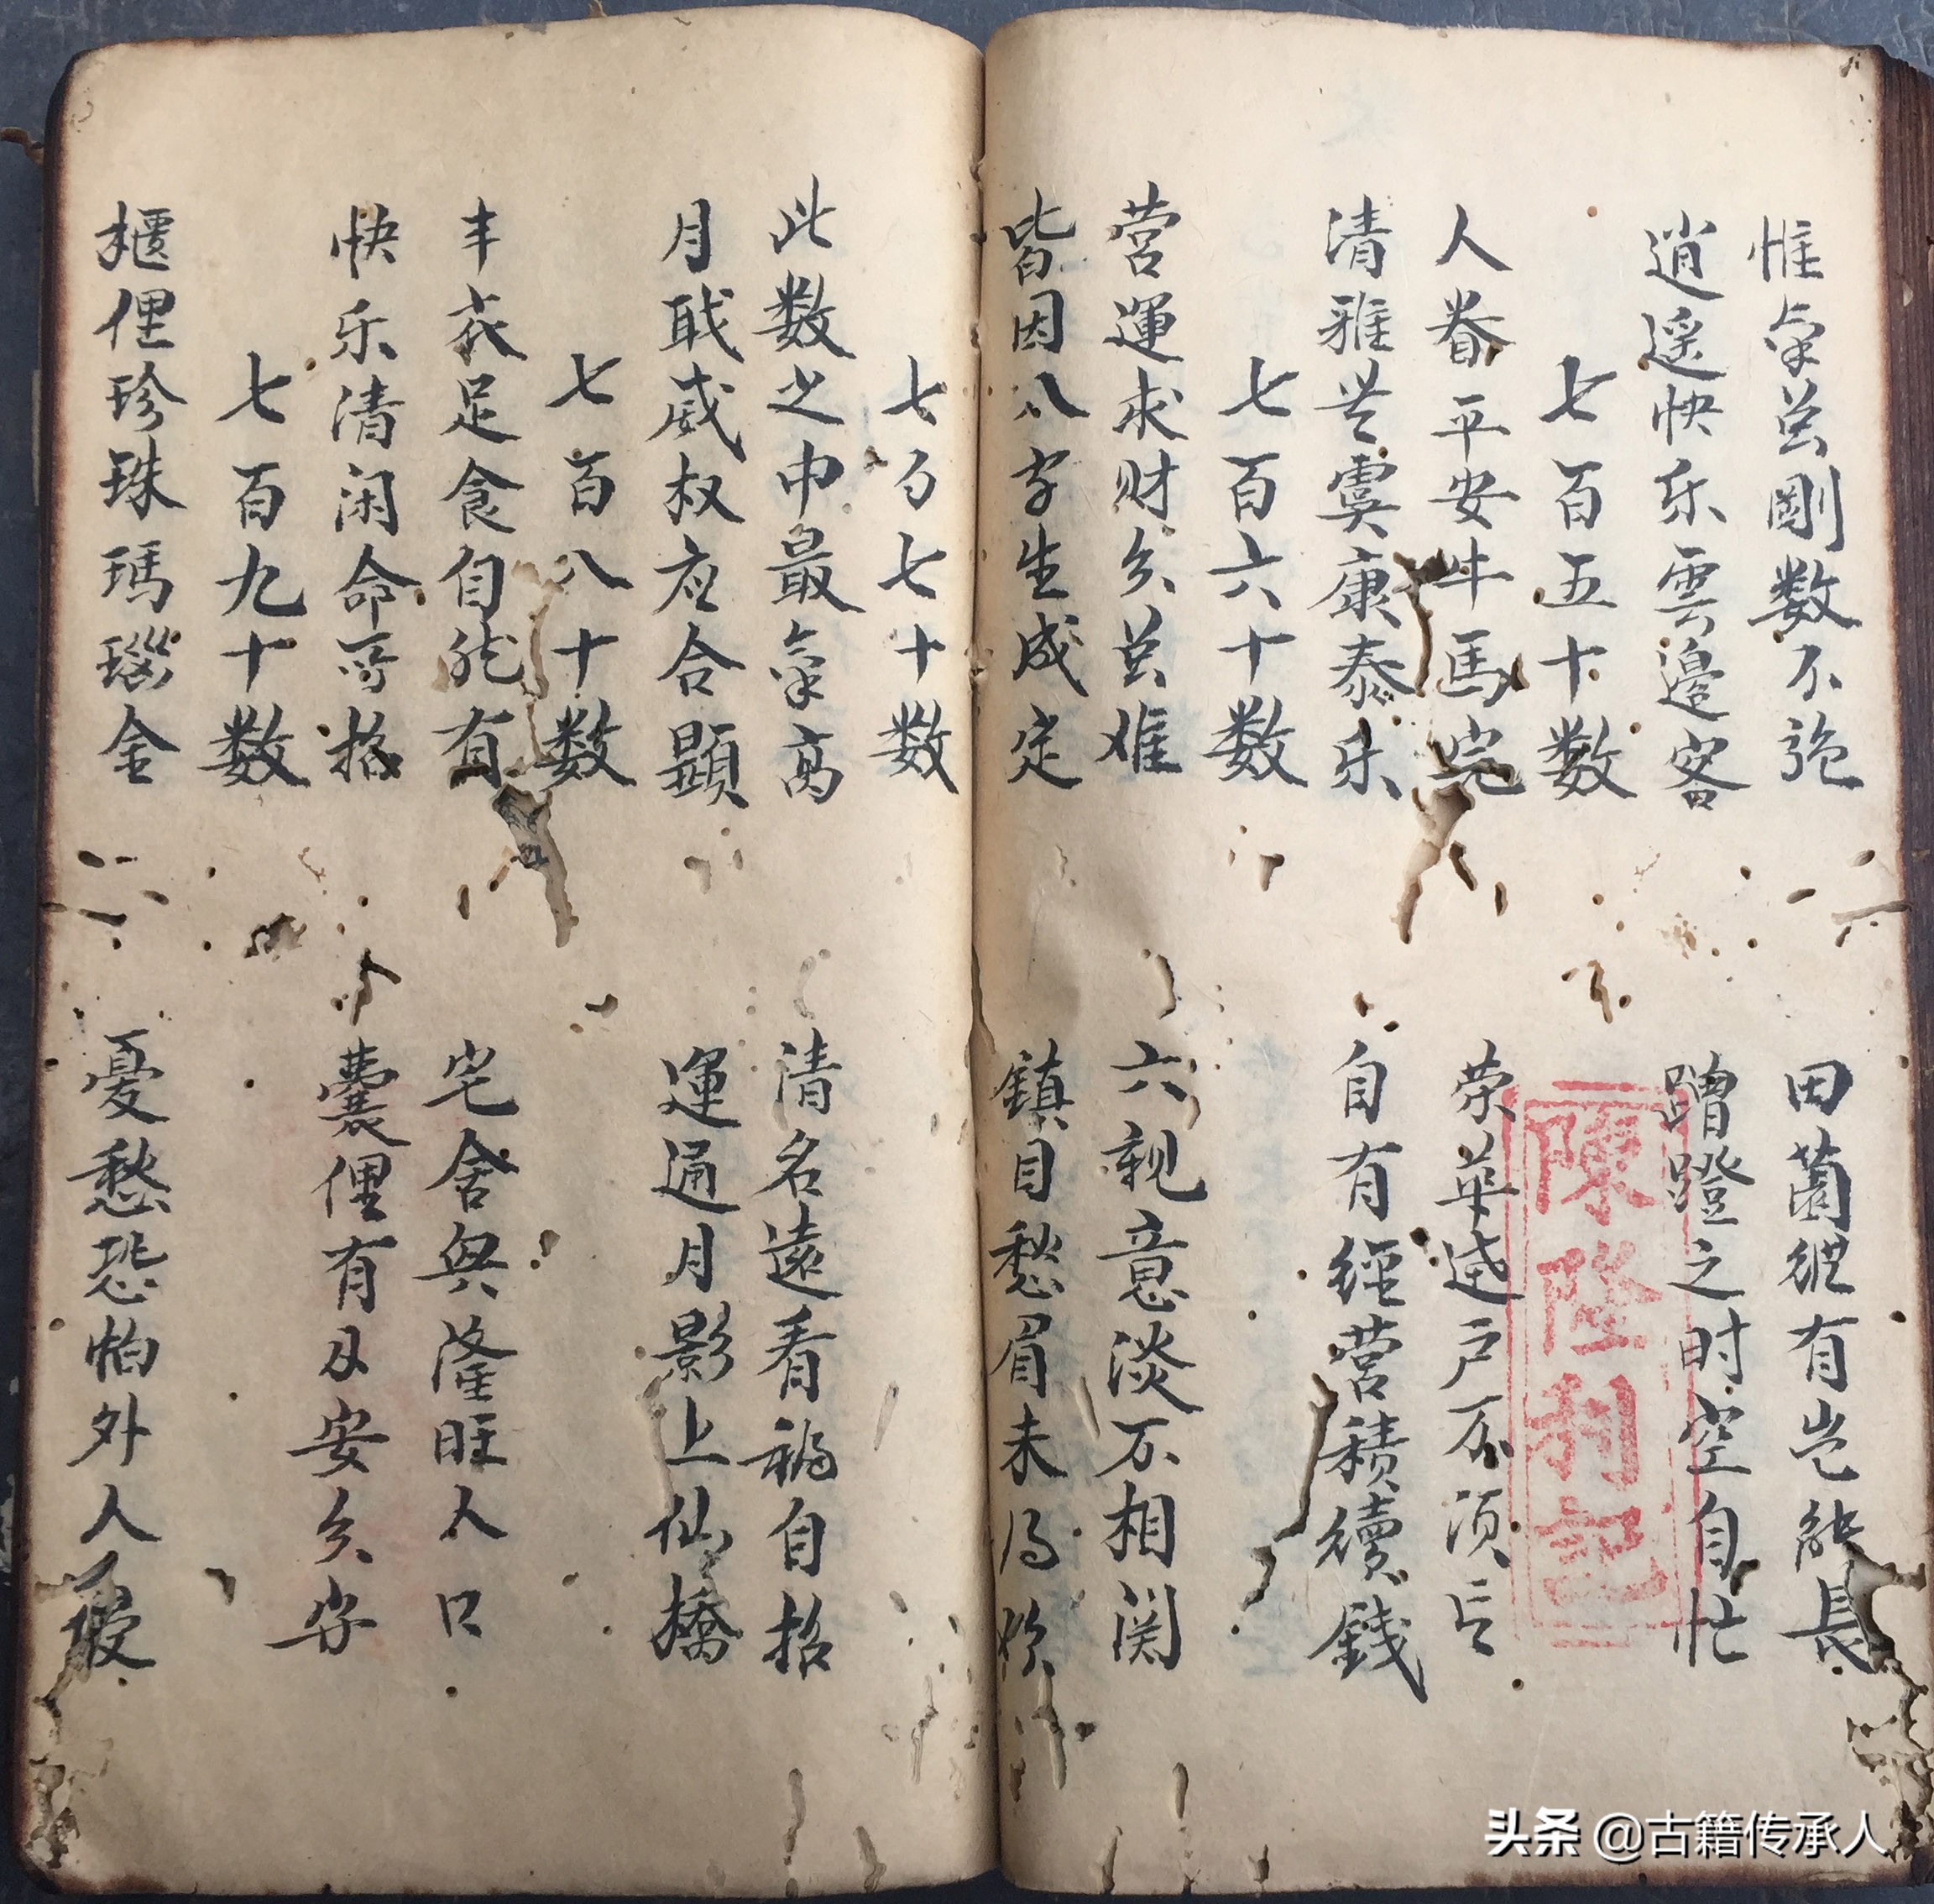 惟命其剛数不強 田園縱有豈能長
逍遥快乐雲邊客 蹭蹬之时空自忙
七百五十数
人眷平安牛馬完 荣華遠户不須言
清雅無虞康泰乐 自有經营積續錢
七百六十数
营運求财分其难 六親意淡不相関
皆因八字生成定 鎮目愁眉未得欢
七百七十数
此数之中最命高 清名遠看福自招
月職威权应合顯 運通月影上仙橋
七百八十数
丰衣足食自然有 宅舍興隆旺人口
快乐清闲命 格 囊俚有及安分守
七百九十数
櫃俚珍珠瑪瑙金 憂愁恐怕外人
陳陞利記
头条 @古籍传承人